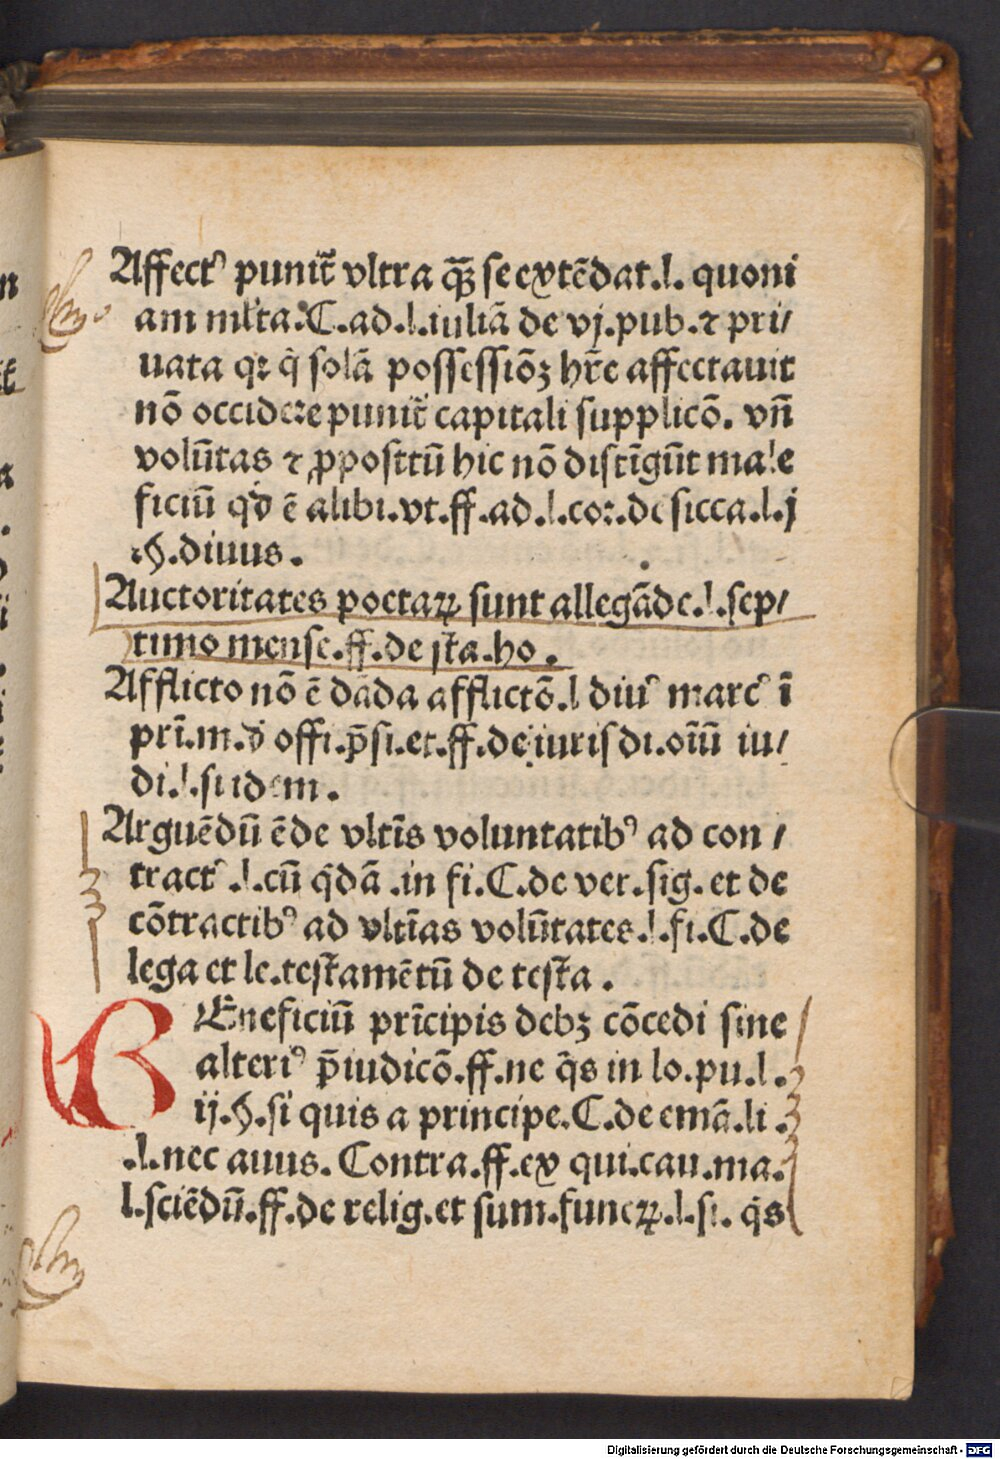 Affectꝰ punit̃ vltra qꝫ̃ se extēdat.l. quoni
am ml̓ta.C.ad.l.iuliā de vj.pub.⁊ pri/
uata qꝛ q̇ solā possessiōꝫ hr̄e affectauit
nō occidere punit̃ capitali supplicō. vn̄
volūtas ⁊ ꝓposttū hic nō distīgūt male
ficiū qđ ē alibi.vt.ff.ad.l.cor.de sicca.l.j
.§.diuus.
Auctoritates poetaꝝ sunt allegāde.l.sep/
timo mense.ff.de sta.ho.
Afflicto nō ē dāda afflictō.l diuꝰ marcꝰ ī
prī.m.đ offi.p̄si.et.ff.de iurisdi.oīū iu/
di.l.si idem.
Arguēdū ēde vltīs voluntatibꝰ ad con/
tractꝰ.l.cū q̇dā.in fi.C.de ver.sig.et de
cōtractibꝰ ad vltīas volūtates.l.fi.C.de
lega et le.testamētū de testa.
BEneficiū prīcipis debꝫ cōcedi sine
alteriꝰ p̄iudicō.ff.ne q̇s in lo.pu.l.
ij.§.si quis a principe.C.de emā.li.
.l.nec auus. Contra.ff.ex qui.cau.ma.
l.sciēdū.ff.de relig.et sum.funeꝝ.l.si. q̇s
Digitalisierung gefördert durch die Deutsche Forschungsgemeinschaft - DFG